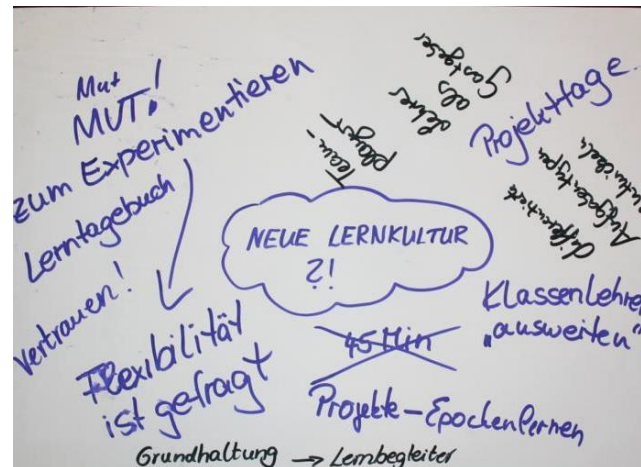 Mut
MUT!
zum Experimentieren
Lerntagebuch
vertrauen!
Flexibilität
ist gefragt
NEUE LERNKULTUR
?!
Team-
planzen
Lehrer
als
Gastgeber
Projekttage
differenzierte
Aufgabentypen
entwickeln
Klassenlehrer
„ausweiten"
45 Min
Projekte – Epochenlernen
Grundhaltung → Lernbegleiter